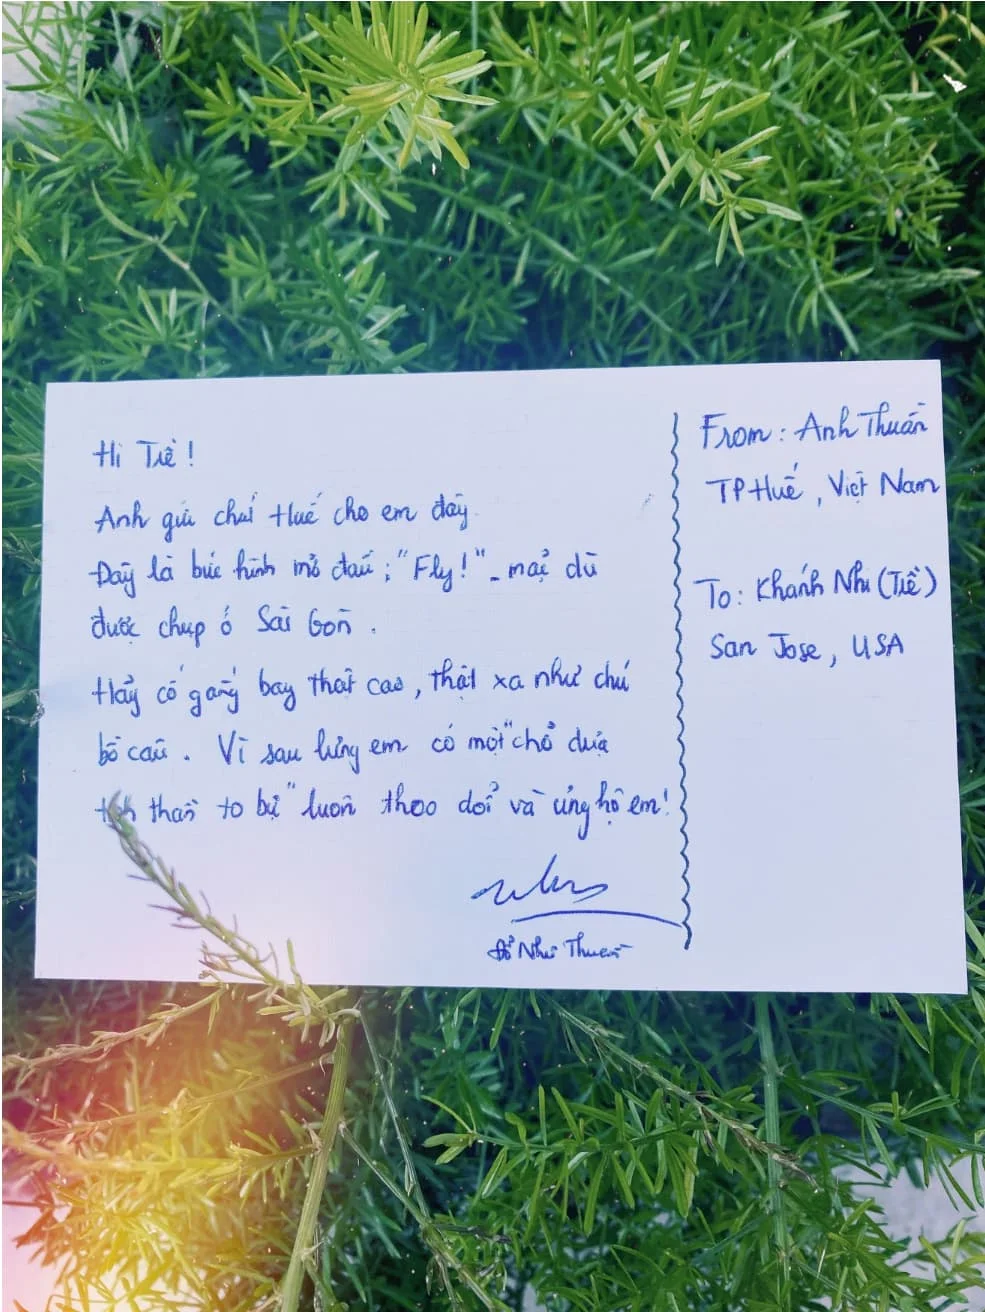 Hi Tiề!
Anh gửi chút Huế cho em đây.
Đây là bức hình mở đầu; "Fly!" - mặc dù
được chụp ở Sài Gòn.
Hãy cố gắng bay thật cao, thật xa như chú
bồ câu. Vì sau lưng em có một "chỗ dựa
tinh thần to bự" luôn theo dõi và ủng hộ em!
Đỗ Như Thuần
From: Anh Thuần
TP Huế, Việt Nam
To: Khánh Nhi (Tiề)
San Jose, USA